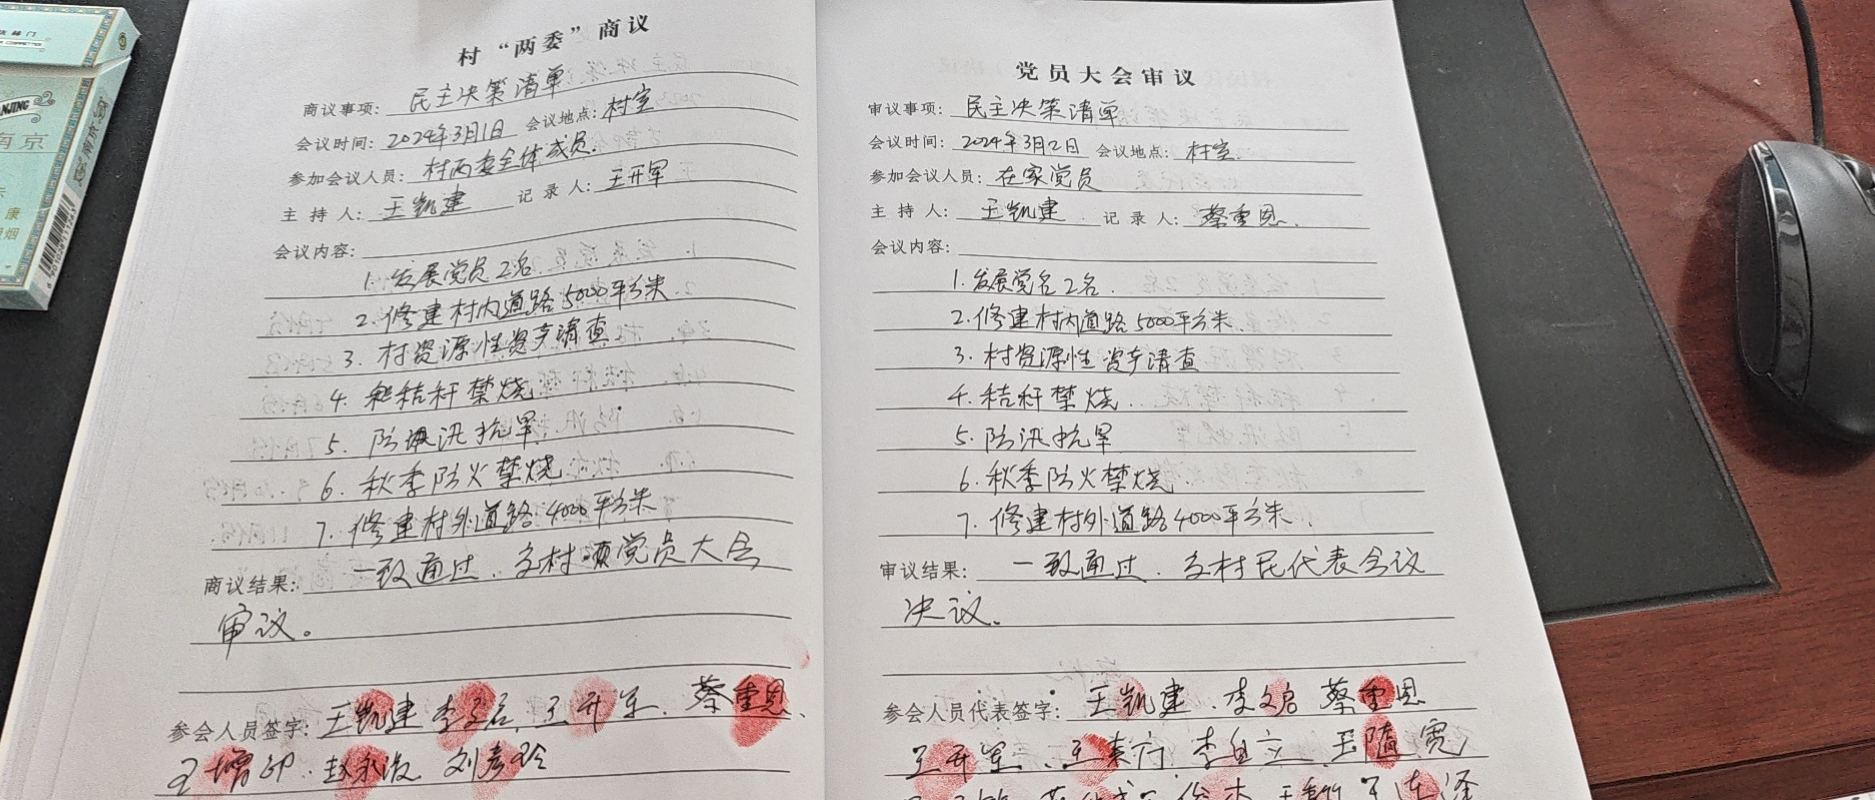 村“两委”商议
商议事项: 民主决策清单
会议时间: 2024年3月1日 会议地点: 村室
参加会议人员: 村两委全体成员.
主持人: 王凯建 记录人: 王开军
会议内容:
1. 发展党员2名
2. 修建村内道路5000平方米
3. 村资源性资产清查
4. 秸秆禁烧
5. 防汛抗旱
6. 秋季防火禁烧
7. 修建村外道路4000平方米
商议结果: 一致通过. 交村党员大会
审议。
参会人员签字: 王凯建 李文启 王开军. 蔡重恩.
党员大会审议
审议事项: 民主决策清单
会议时间: 2024年3月2日 会议地点: 村室.
参加会议人员: 在家党员
主持人: 王凯建. 记录人: 蔡重恩.
会议内容:
1. 发展党名2名.
2. 修建村内道路5000平方米
3. 村资源性资产清查
4. 秸秆禁烧.
5. 防汛抗旱
6. 秋季防火禁烧.
7. 修建村外道路4000平方米.
审议结果: 一致通过. 交村民代表会议
决议。
参会人员代表签字: 王凯建. 李文启 蔡重恩
王开军. 李自立
南京